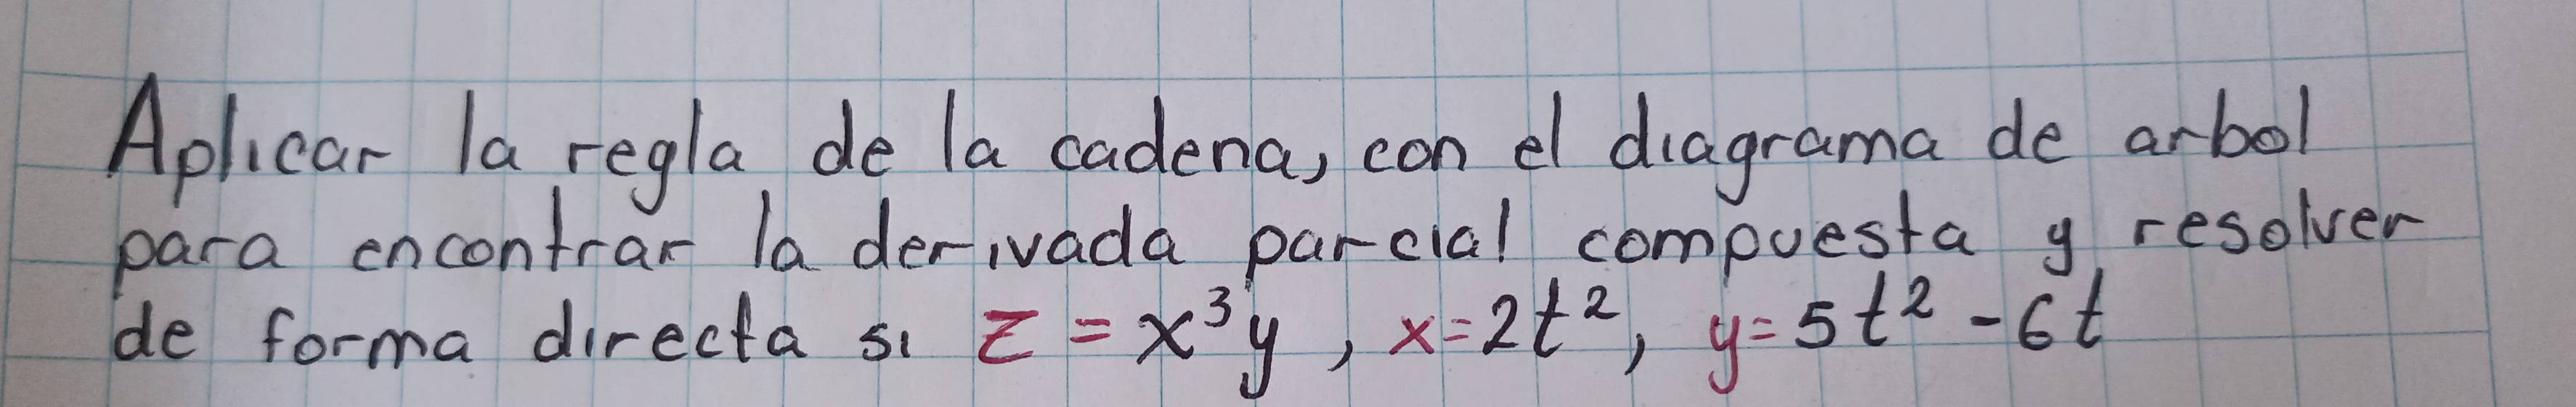 Aplicar la regla de la cadena, con el diagrama de arbol
para encontrar la derivada parcial compuesta y resolver
de forma directa si z = x³y, x=2t², y=5t²-6t